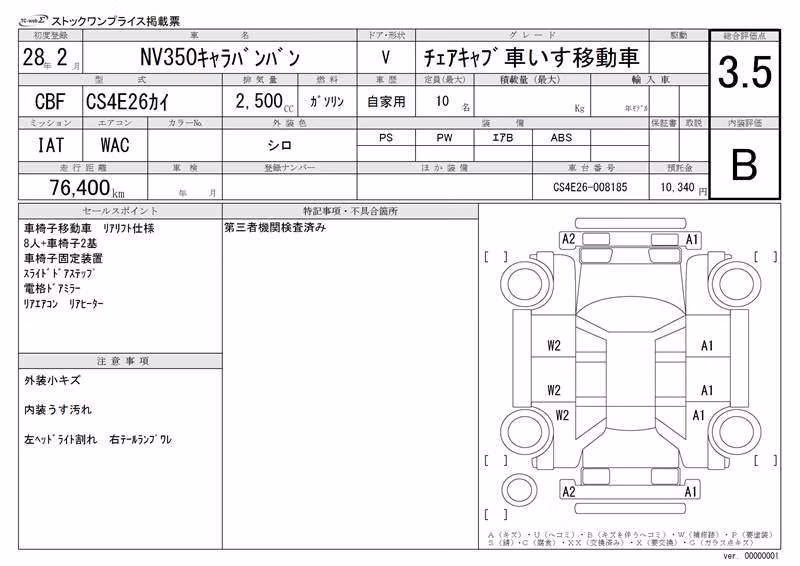 TC-webΣ ストックワンプライス掲載票
初度登録 車 名 ドア・形状 グ レ ー ド 駆動 総合評価点
28年 2月 NV350ｷｬﾗﾊﾞﾝﾊﾞﾝ V ﾁｪｱｷｬﾌﾞ 車いす移動車 3.5
型 式 排 気 量 燃 料 車 歴 定員（最大） 積載量（最大） 輸 入 車
CBF CS4E26ｶｲ 2,500cc ｶﾞｿﾘﾝ 自家用 10 名 Kg 年ﾓﾃﾞﾙ
ミッション エアコン カラーNo. 外 装 色 装 備 保証書 取説 内装評価
IAT WAC シロ PS PW ｴｱB ABS B
走 行 距 離 車 検 登録ナンバー ほ か 装 備 車 台 番 号 預託金
76,400km 年 月 CS4E26-008185 10,340 円
セールスポイント 特記事項・不具合箇所
車椅子移動車 ﾘｱﾘﾌﾄ仕様 第三者機関検査済み
8人+車椅子2基
車椅子固定装置
ｽﾗｲﾄﾞﾄﾞｱｽﾃｯﾌﾟ
電格ﾄﾞｱﾐﾗｰ
ﾘｱｴｱｺﾝ ﾘｱﾋｰﾀｰ
注 意 事 項
外装小キズ
内装うす汚れ
左ﾍｯﾄﾞﾗｲﾄ割れ 右ﾃｰﾙﾗﾝﾌﾟﾜﾚ
A2 A1
[ ] [ ]
W2 A1
W2 A1
W2 A1
[ ] [ ]
A2 A1
[ ]
A（キズ）・U（ヘコミ）・B（キズを伴うヘコミ）・W（補修跡）・P（要塗装）
S（錆）・C（腐食）・XX（交換済み）・X（要交換）・G（ガラス点キズ）
ver. 00000001